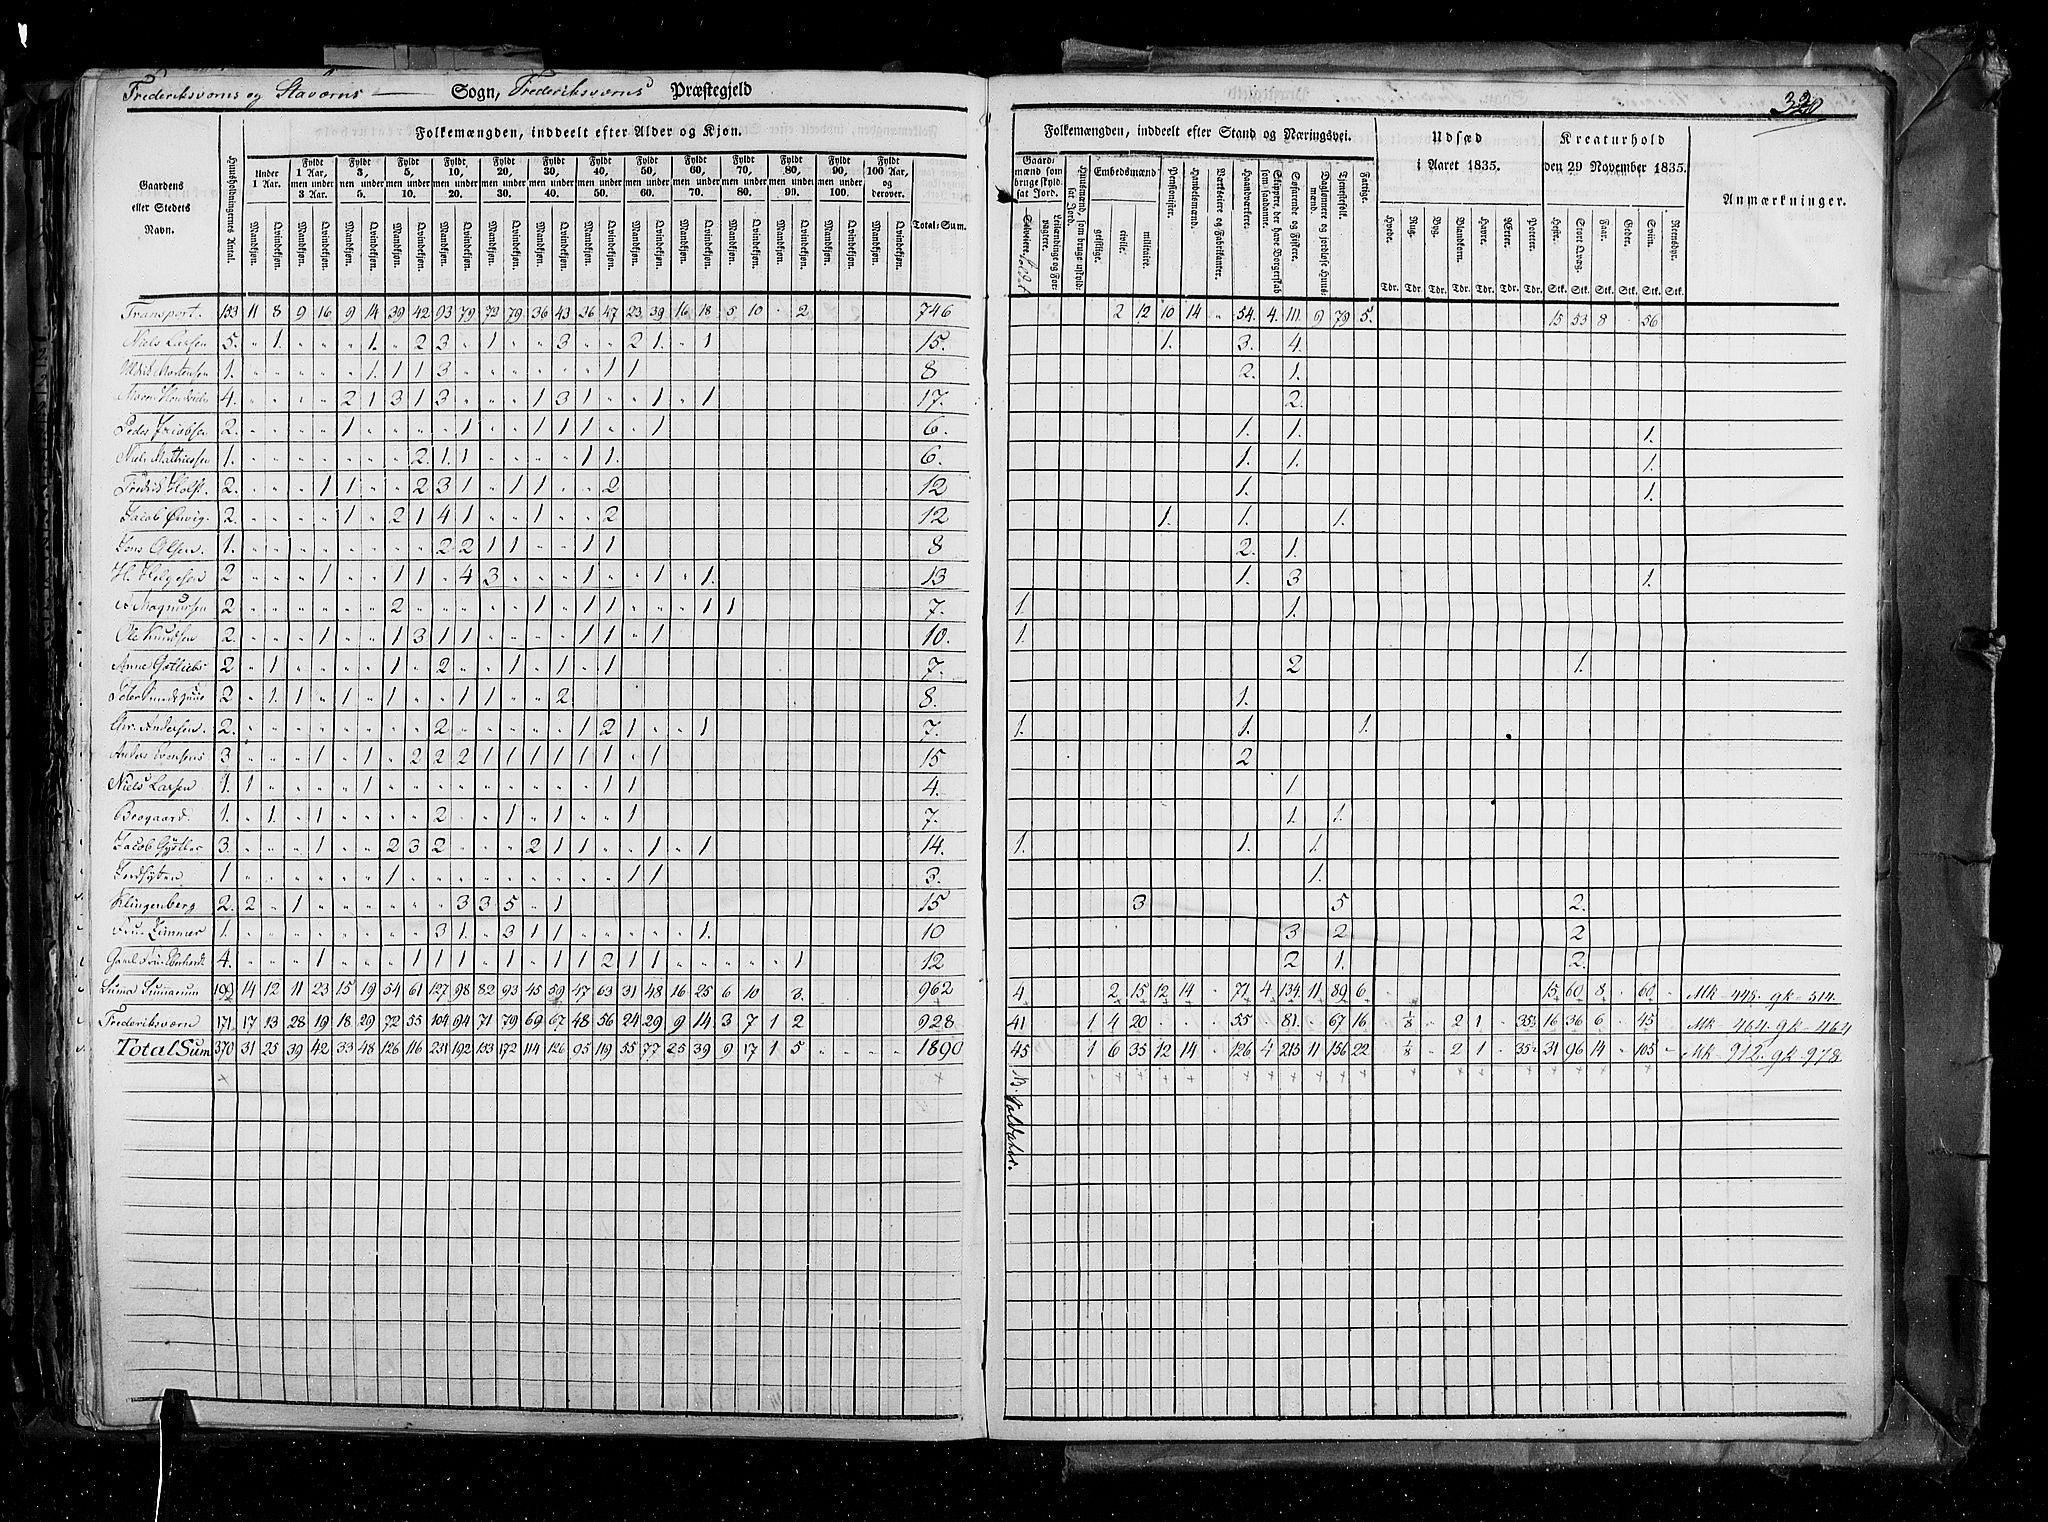 Frederiksværns og Staværns Sogn, Frederiksværns Præstegjeld
Gaardens eller Stedets Navn.
Huusholdningernes Antal.
Folkemængden, inddeelt efter Alder og Kjøn.
Under 1 Aar.
Fyldt 1 Aar, men under 3 Aar.
Fyldt 3, men under 5.
Fyldt 5, men under 10.
Fyldt 10, men under 20.
Fyldt 20, men under 30.
Fyldt 30, men under 40.
Fyldt 40, men under 50.
Fyldt 50, men under 60.
Fyldt 60, men under 70.
Fyldt 70, men under 80.
Fyldt 80, men under 90.
Fyldt 90, men under 100.
Fyldt 100 Aar, og derover.
Mandkjøn. Qvindekjøn.
Total-Sum.
Transport. 133 11 8 9 16 9 14 39 42 93 79 73 79 36 43 36 47 23 39 16 18 5 10 2 746
Niels Larsen 5. 1. 1. 2 3 1 3 2 1. 1 15.
Mortensen 1. 1. 1 1 3 1 1 8
4. 2 1 3 1 3 1 3 1 1 1 17.
Peder Jacobsen 2. 1 1 1 1 1 1 6.
Niels Mathiessen 1. 2 1. 1 1 1. 6.
Fredrik Holst. 2. 1 1 2 3 1 1 1 2 12
Jacob Ørvig. 2. 1 2 1 4 1 1 2 12
Jens Olsen. 1. 2 2 1 1 1 1 8
H. Helgesen 2 1 1 1 4 3 1 1 1. 13
Magnussen 2 2 1 1 1 1 1 7.
Ole Knudsen 2. 1 1 3 1 1 1 1 1 10.
Anne Gotliebs 2 1 1 2 1 1 1 7.
2 1. 1 1 1 1 1 2. 8.
Chr. Andersen. 2. 2 1 2 1 1 7.
Anders 3 1 1 2 2 2 1 1 1 1 1 1 1 15
Niels Larsen 1. 1 1 1 1 4.
Brogaard. 1. 1. 1 2 1 1 1 7.
Jacob 3. 1 2 3 2 2 1 1 1 1 14.
1 1 1 1 3.
Klingenberg 2. 2 1 3 3 5 1 15
Fru Zimmer 1. 3 1. 3 1 1 1. 10
4. 1 1 1 1 1 1 1 2 1 1 1 12
Summa Summarum 199 14 12 11 23 15 19 54 61 127 98 82 93 45 59 47 63 31 48 16 25 6 10 3. 962
Frederiksværn 171 17 13 28 19 18 29 72 55 104 94 71 79 69 67 48 56 24 29 9 14 3 7 1 2 928
Total Sum 370 31 25 39 42 33 48 126 116 231 192 153 172 114 126 95 119 55 77 25 39 9 17 1 5 1890
Folkemængden, inddeelt efter Stand og Næringsvei.
Gaardmænd som bruge skyldsat Jord.
Selveiere.
Leilændinge og Forpagtere.
Huusmænd, som bruge uskyldsat Jord.
Embedsmænd
geistlige.
civile.
militaire.
Pensionister.
Handelsmænd.
Værkseiere og Fabrikanter.
Haandværkere.
Skippere, der have Borgerskab som saadanne.
Søfarende og Fiskere.
Dagleønnere og jordløse Huusmænd.
Tjenestefolk.
Fattige.
Udsæd i Aaret 1835.
Hvede. Rug. Byg. Blandkorn. Havre. Ærter. Poteter.
Tdr. Tdr. Tdr. Tdr. Tdr. Tdr. Tdr.
Kreaturhold den 29 November 1835.
Heste. Stort Qvæg. Faar. Geder. Sviin. Rensdyr.
Stk. Stk. Stk. Stk. Stk. Stk.
Anmærkninger.
2 12 10 14 54. 4. 111 9 79 5. 15 53 8 56
1. 3. 4.
2. 1.
2.
1. 1. 1.
1. 1. 1.
1. 1.
1. 1. 1.
2. 1.
1. 3 1.
1. 1.
1.
2 1.
1.
1. 1. 1.
2
1
1. 1.
1. 1. 1.
1.
3 5 2.
3 2 2
2 1. 2.
4 2 15 12 14 71 4 134 11 89 6 15 60 8 60 Mk - 448. qk - 514.
41 1 4 20 55 81. 67 16 1/8 2 1 35½ 16 36 6 45 Mk - 464. qk - 464
45 1 6 35 12 14 126 4 215 11 156 22 1/8 2 1 35½ 31 96 14 105 Mk - 912. qk - 978.